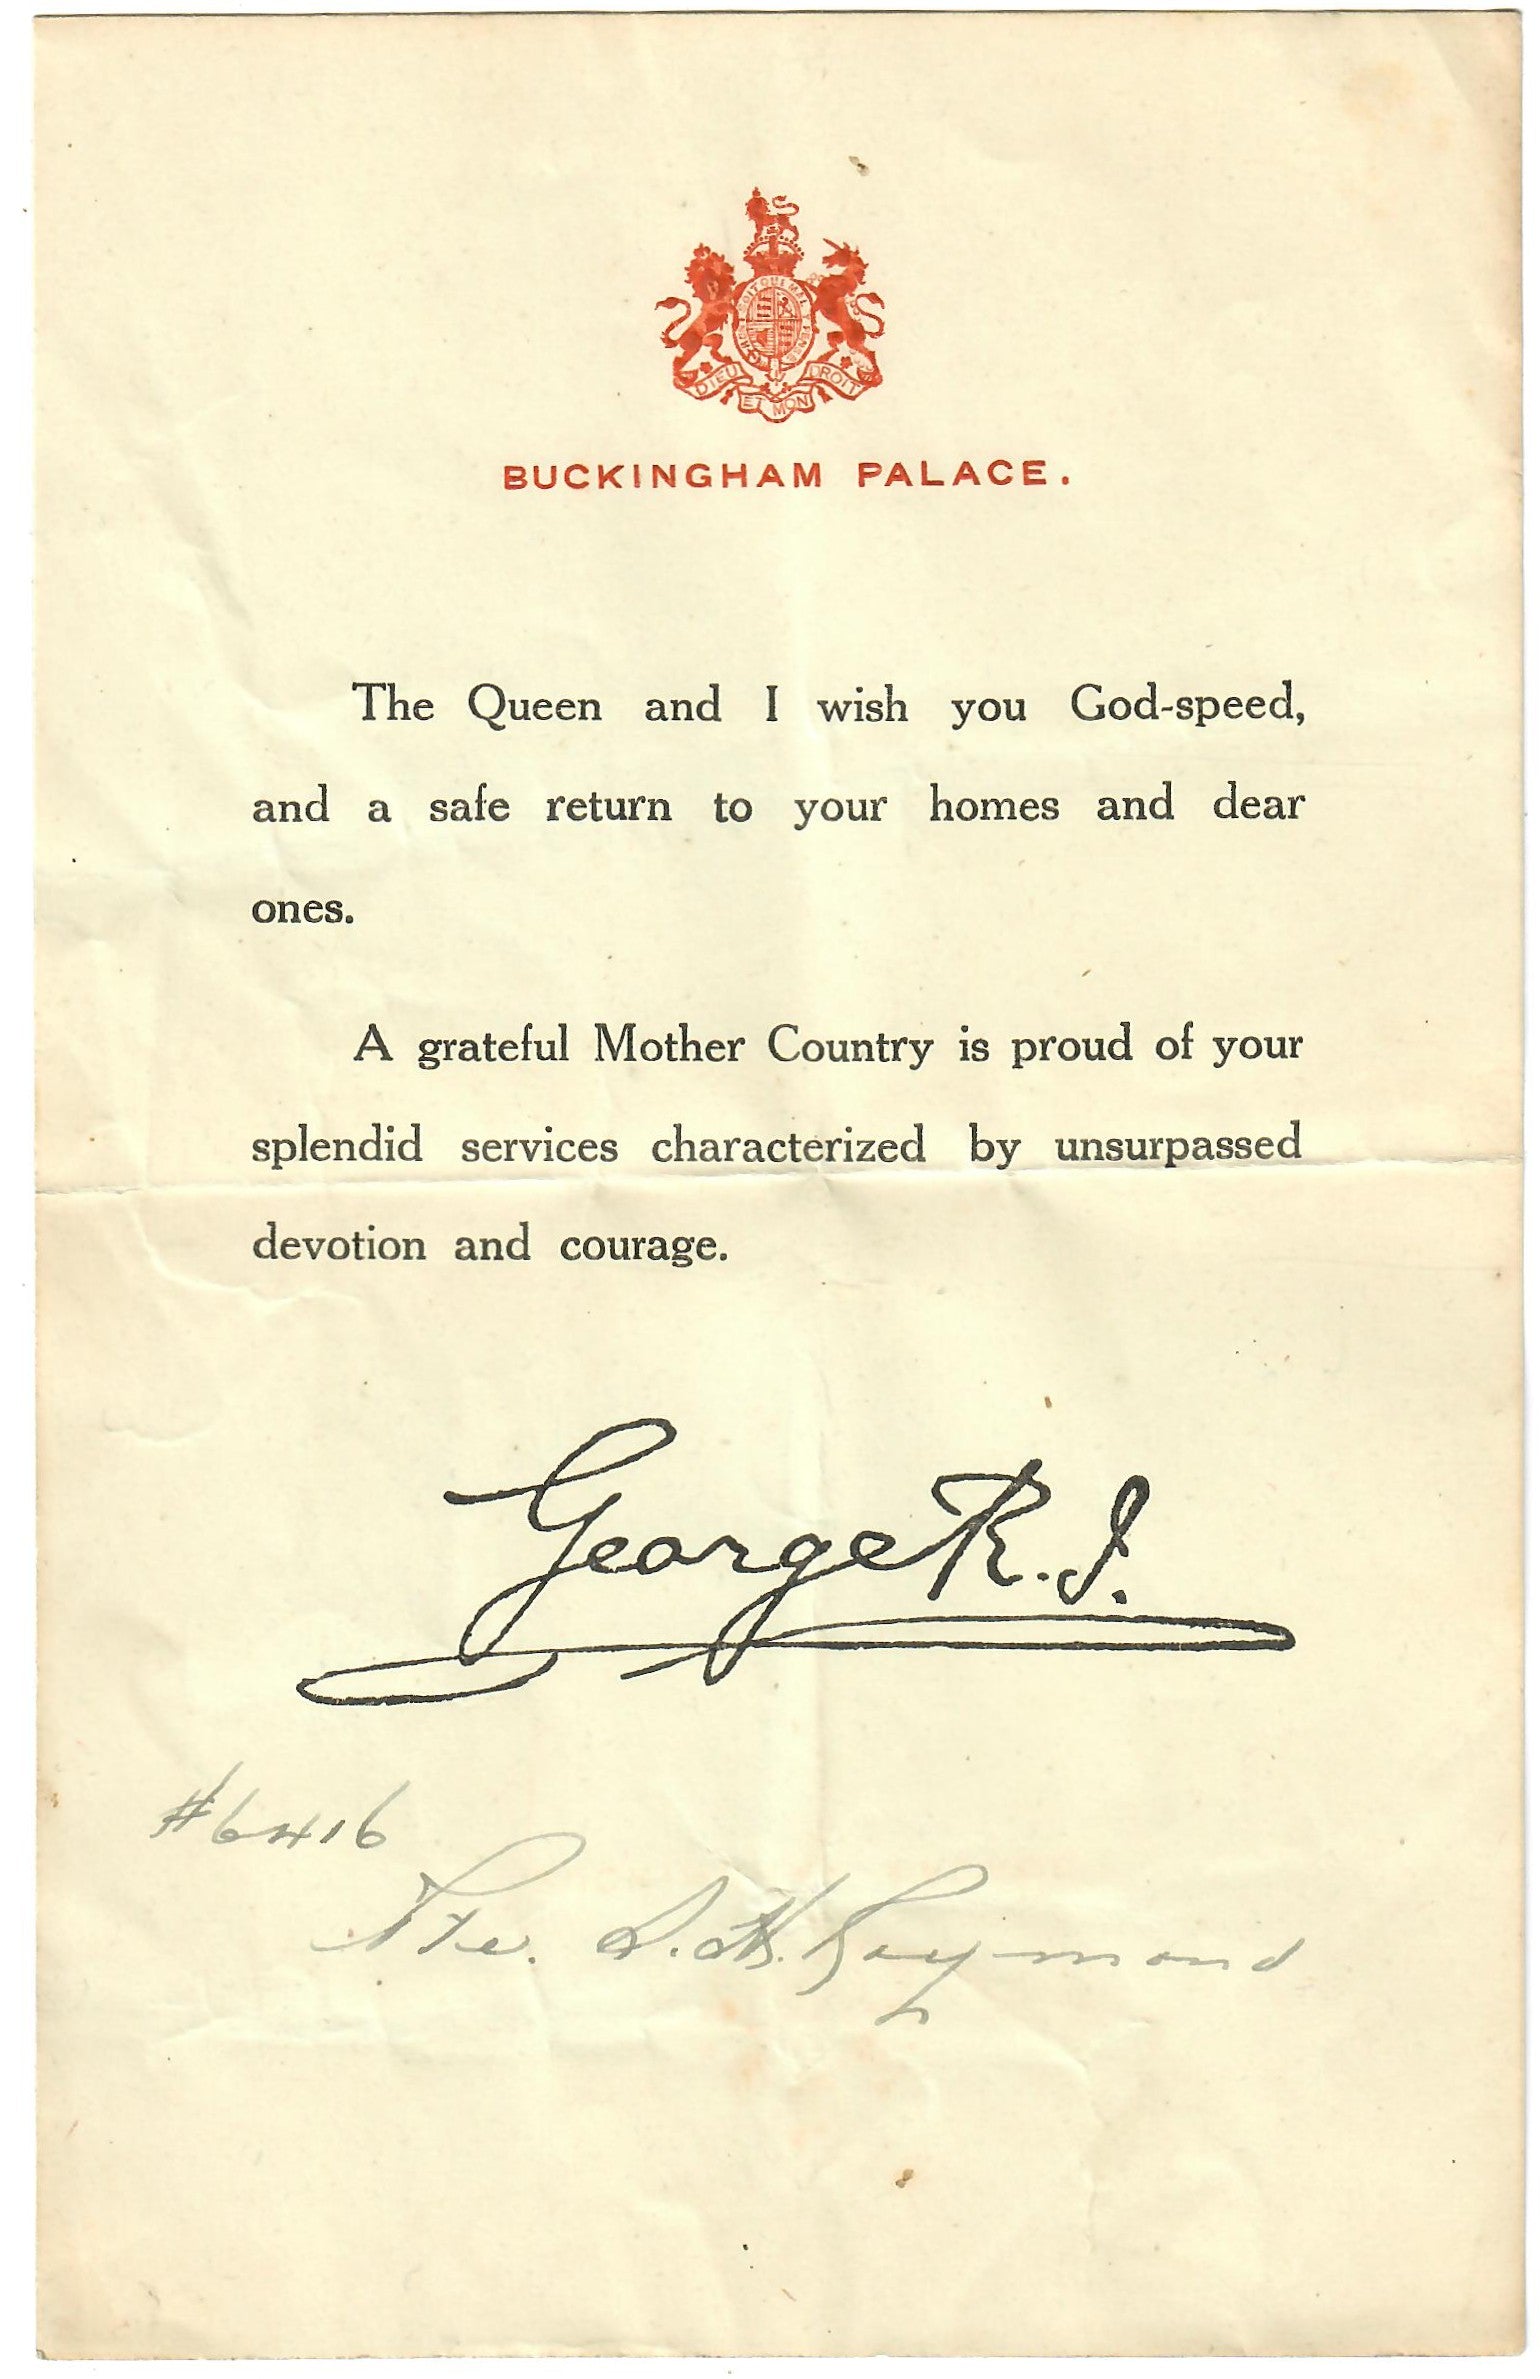 HONI SOIT QUI MAL Y PENSE
DIEU ET MON DROIT
BUCKINGHAM PALACE.
The Queen and I wish you God-speed,
and a safe return to your homes and dear
ones.
A grateful Mother Country is proud of your
splendid services characterized by unsurpassed
devotion and courage.
George R.I.
#6416
Pte. Raymond